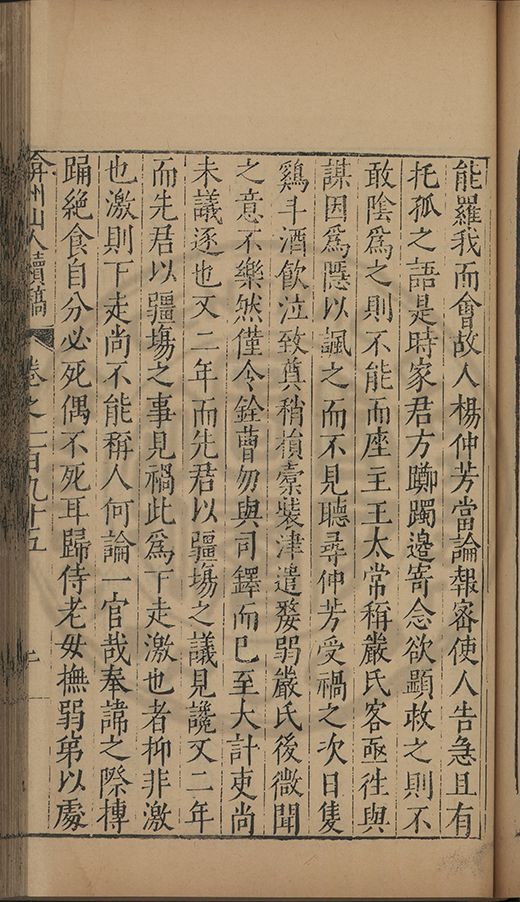 能羅我而會故人楊仲芳當論報密使人告急且有
托孤之語是時家君方躑躅邊寄念欲顯救之則不
敢陰爲之則不能而座主王太常稱嚴氏客亟徃與
謀因爲隱以諷之而不見聽尋仲芳受禍之次日隻
鷄斗酒飲泣致奠稍損橐裝津遣嫠弱嚴氏後微聞
之意不樂然僅令銓曹勿與司鐸而已至大計吏尚
未議逐也又二年而先君以疆塲之議見讒又二年
而先君以疆塲之事見禍此爲下走激也者抑非激
也激則下走尚不能稱人何論一官哉奉諱之際摶
踊絶食自分必死偶不死耳歸侍老毋撫弱弟以處
弇州山人續稿
卷之一百九十五
二